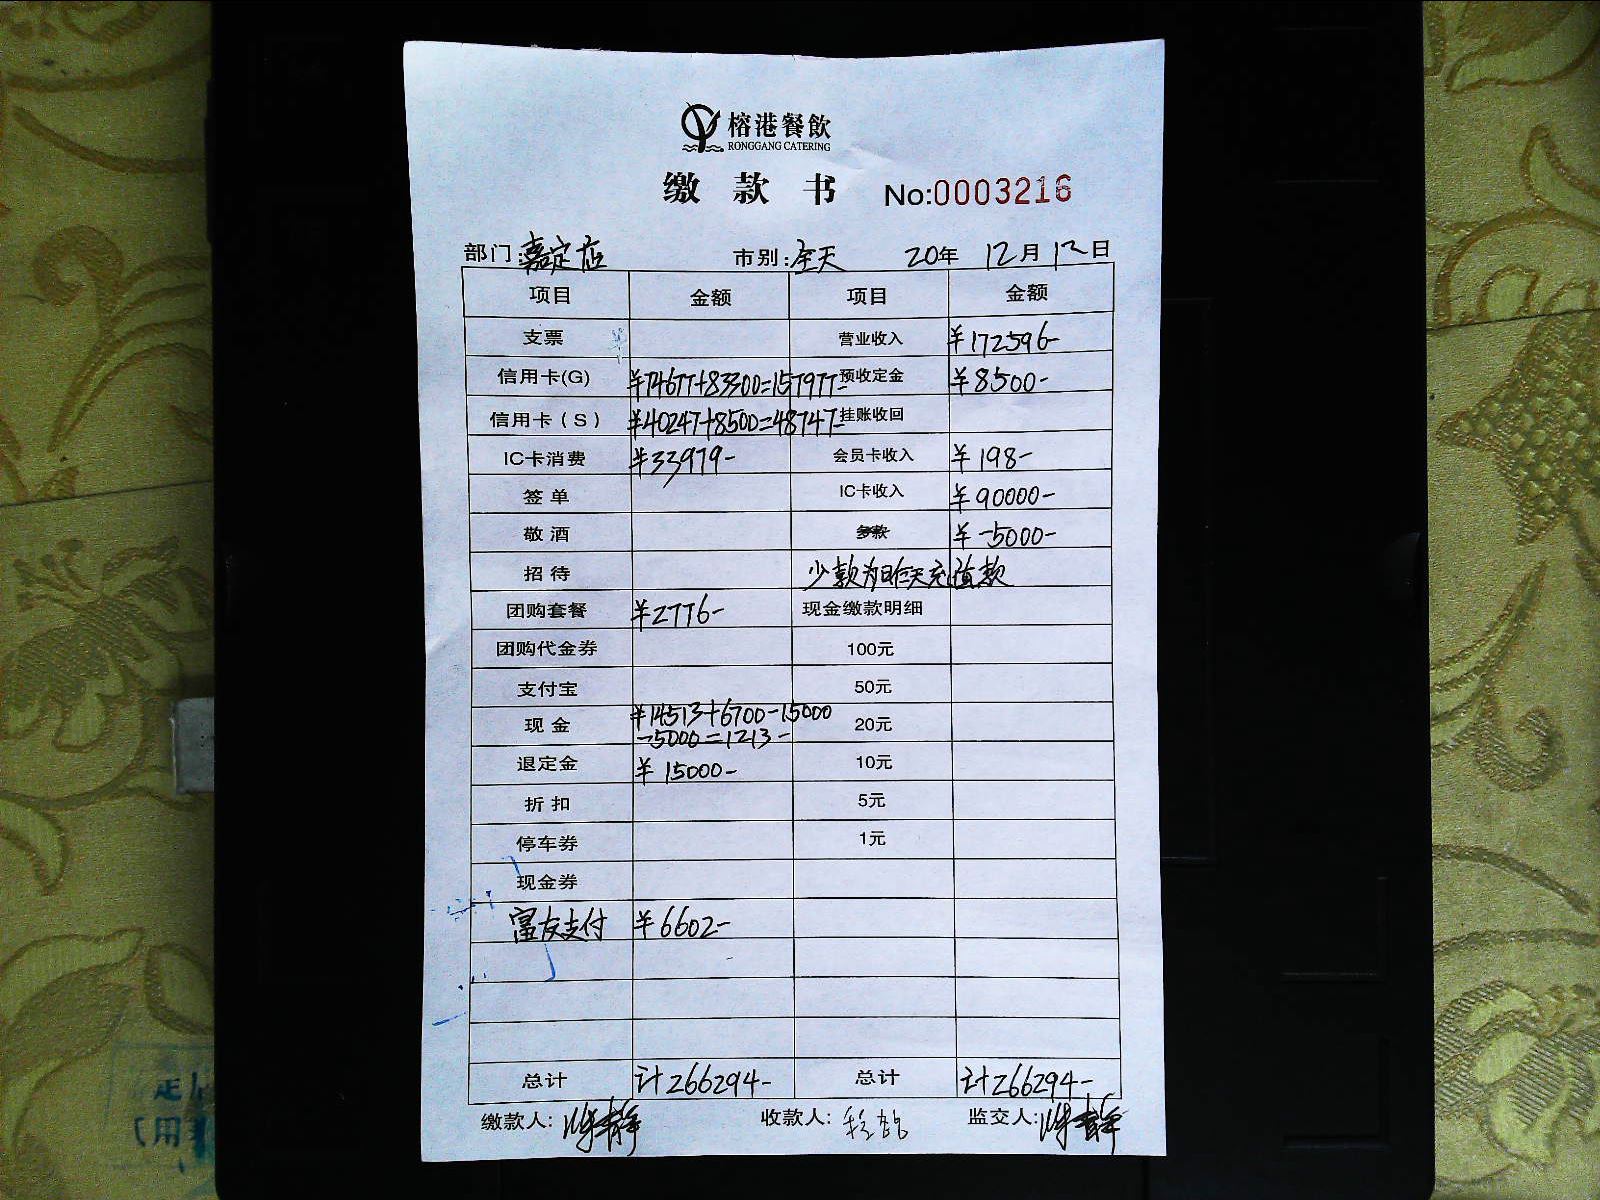 榕港餐飲
RONGGANG CATERING
缴款书 No:0003216
部门:嘉定店 市别:全天 20年 12月 12日
项目 金额 项目 金额
支票 营业收入 ¥172596-
信用卡(G) ¥74677+83300=157977- 预收定金 ¥8500-
信用卡(S) ¥40247+8500=48747- 挂账收回
IC卡消费 ¥33979- 会员卡收入 ¥198-
签单 IC卡收入 ¥90000-
敬酒 多款 ¥-5000-
招待 少款为昨天充值款
团购套餐 ¥2776- 现金缴款明细
团购代金券 100元
支付宝 50元
现金 ¥14513+6700-15000 20元
-5000=1213-
退定金 ¥15000- 10元
折扣 5元
停车券 1元
现金券
富友支付 ¥6602-
总计 计266294- 总计 计266294-
缴款人: 收款人: 监交人: